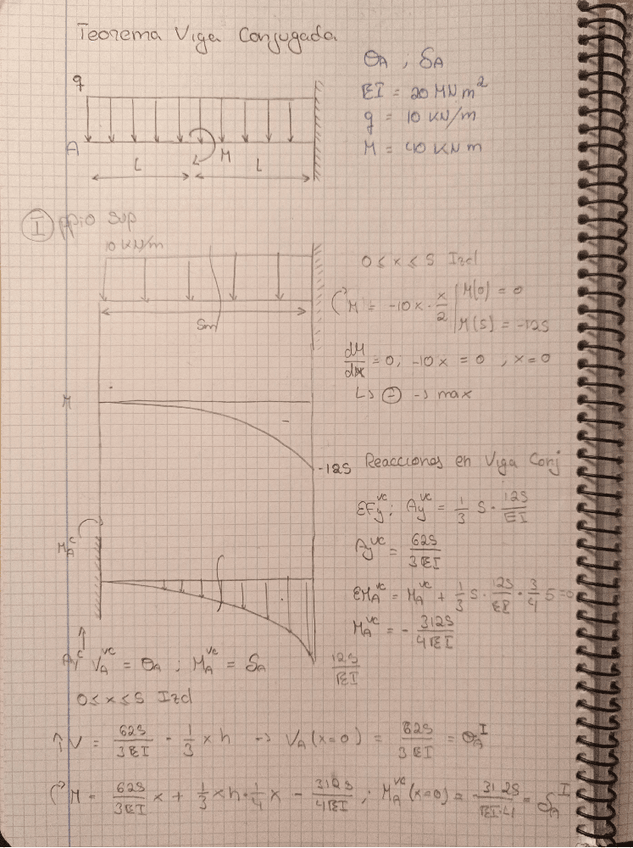 Teorema Viga Conjugada
θA , δA
EI = 20 MN m²
q = 10 KN/m
M = 40 KN m
q
A
M
L
L
I ppio Sup
10 KN/m
5m
0 ≤ x ≤ 5 Izd
M = -10x · x/2 | M(0) = 0
M(5) = -125
dM/dx = 0; -10x = 0 , x = 0
L> ⊖ -> max
M
-
-125
Reacciones en Viga Conj
ΣFy^vc; Ay^vc = 1/3 5 · 125/EI
Ay^vc = 625/3EI
ΣMA^vc = MA^vc + 1/3 5 · 125/EI · 3/4 5 = 0
MA^vc = - 3125/4EI
MA^c
Ay^c
125/EI
VA^vc = θA ; MA^vc = δA
0 ≤ x ≤ 5 Izd
↑V = 625/3EI - 1/3 x h -> VA(x=0) = 625/3EI = θA^I
M = 625/3EI x + 1/3 x h · 1/4 x - 3125/4EI ; MA^vc (x=0) = 3125/EI·4 = δA^I